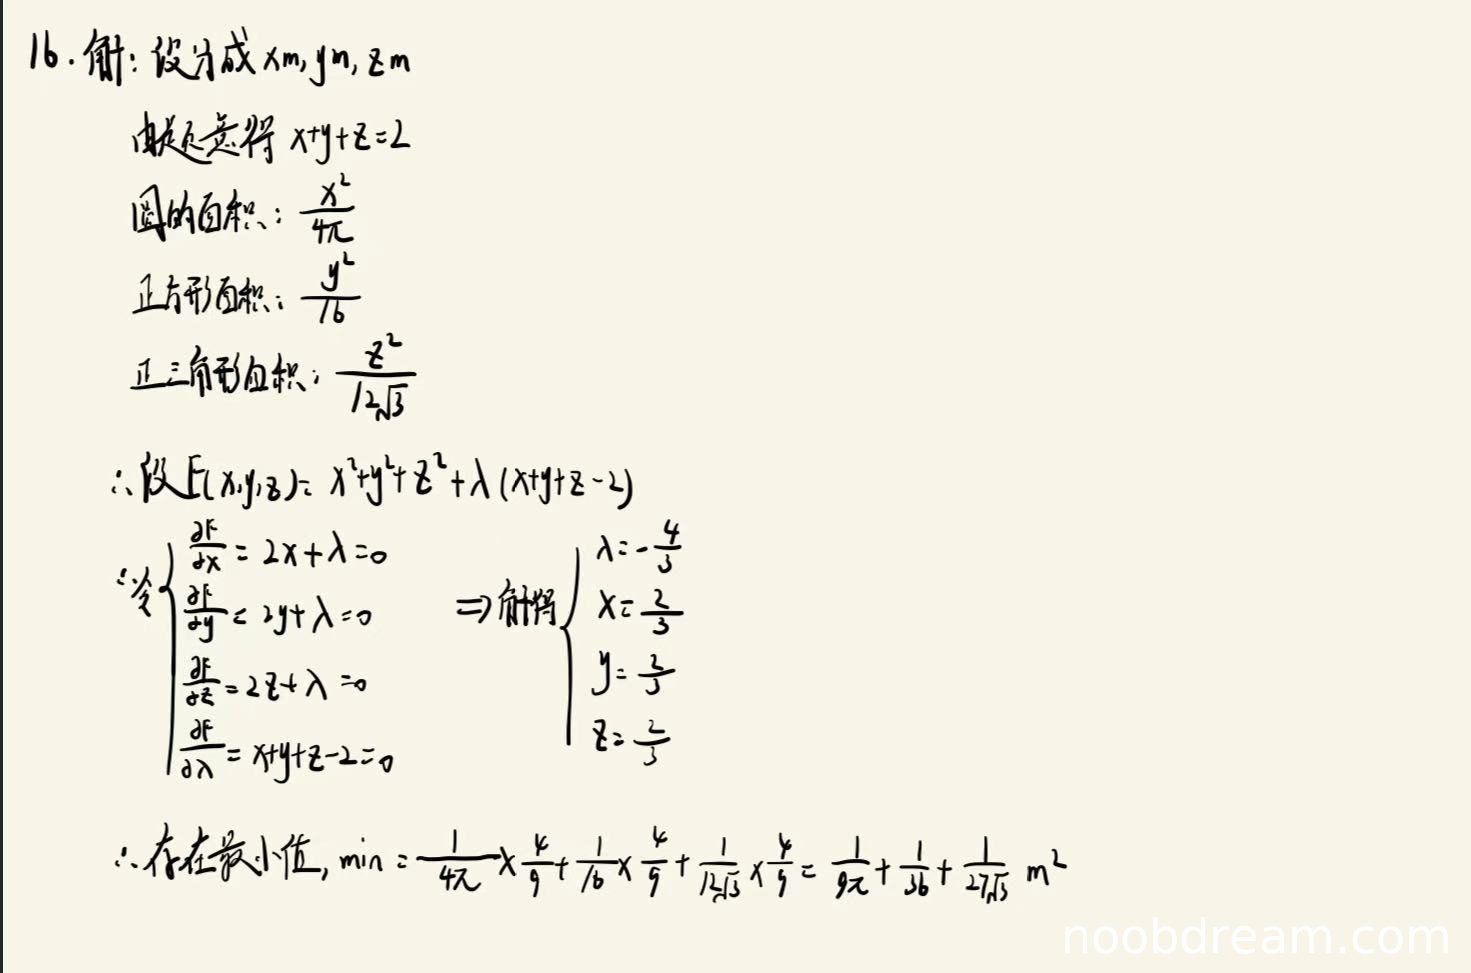 16. 解: 设分成 xm, ym, zm
由题意得 x+y+z=2
圆的面积: x²/4π
正方形面积: y²/16
正三角形面积: z²/12√3
∴设F(x,y,z)= x²+y²+z²+λ(x+y+z-2)
∴令 { ∂F/∂x = 2x+λ=0
∂F/∂y = 2y+λ=0
∂F/∂z = 2z+λ=0
∂F/∂λ = x+y+z-2=0
⇒解得 { λ=-4/3
x=2/3
y=2/3
z=2/3
∴存在最小值, min = 1/4π × 4/9 + 1/16 × 4/9 + 1/12√3 × 4/9 = 1/9π + 1/36 + 1/27√3 m²
noobdream.com